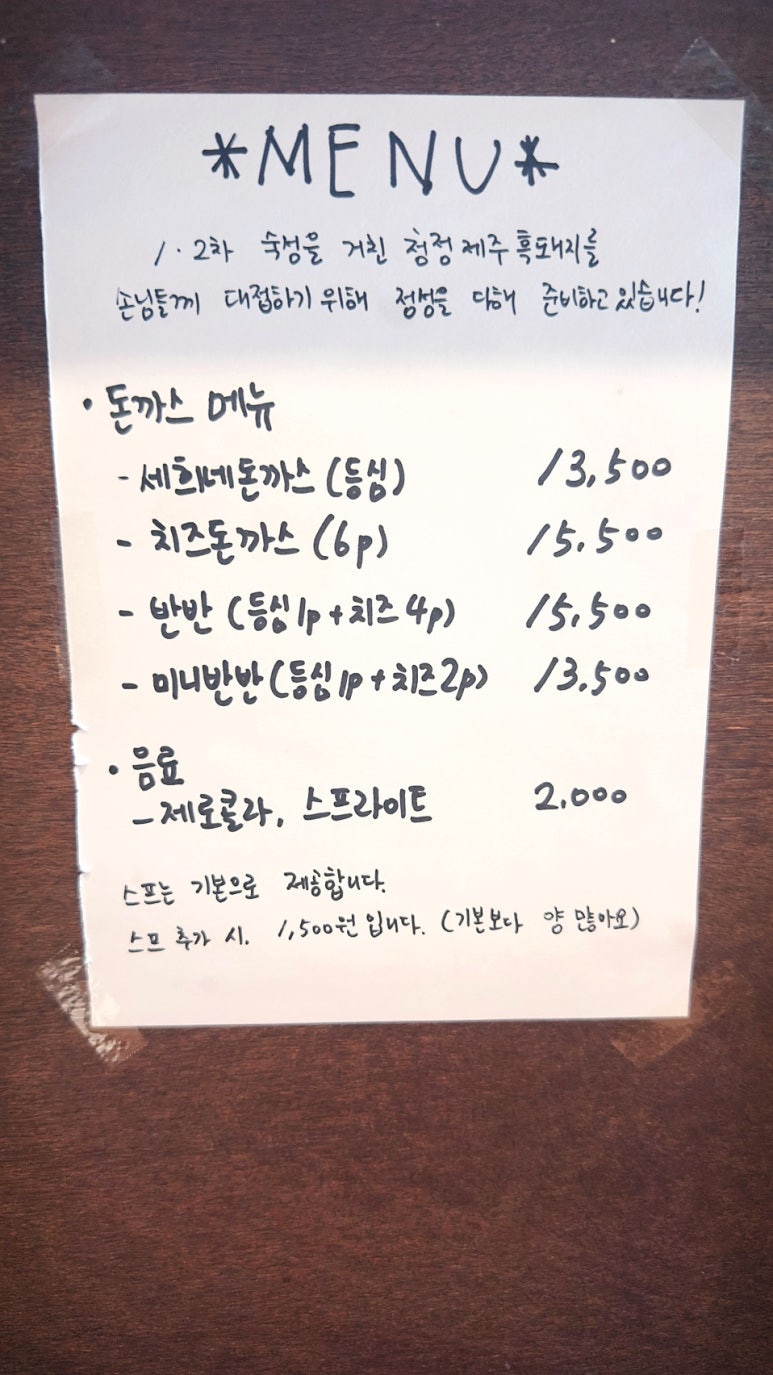 *MENU*
1·2차 숙성을 거친 청정 제주 흑돼지를
손님들께 대접하기 위해 정성을 다해 준비하고 있습니다!
• 돈까스 메뉴
- 세희네돈까스 (등심) 13,500
- 치즈돈까스 (6p) 15.500
- 반반 (등심1p + 치즈 4p) 15,500
- 미니반반 (등심1p + 치즈2p) 13.500
• 음료
- 제로콜라, 스프라이트 2.000
스프는 기본으로 제공합니다.
스프 추가 시. 1,500원 입니다. (기본보다 양 많아요)